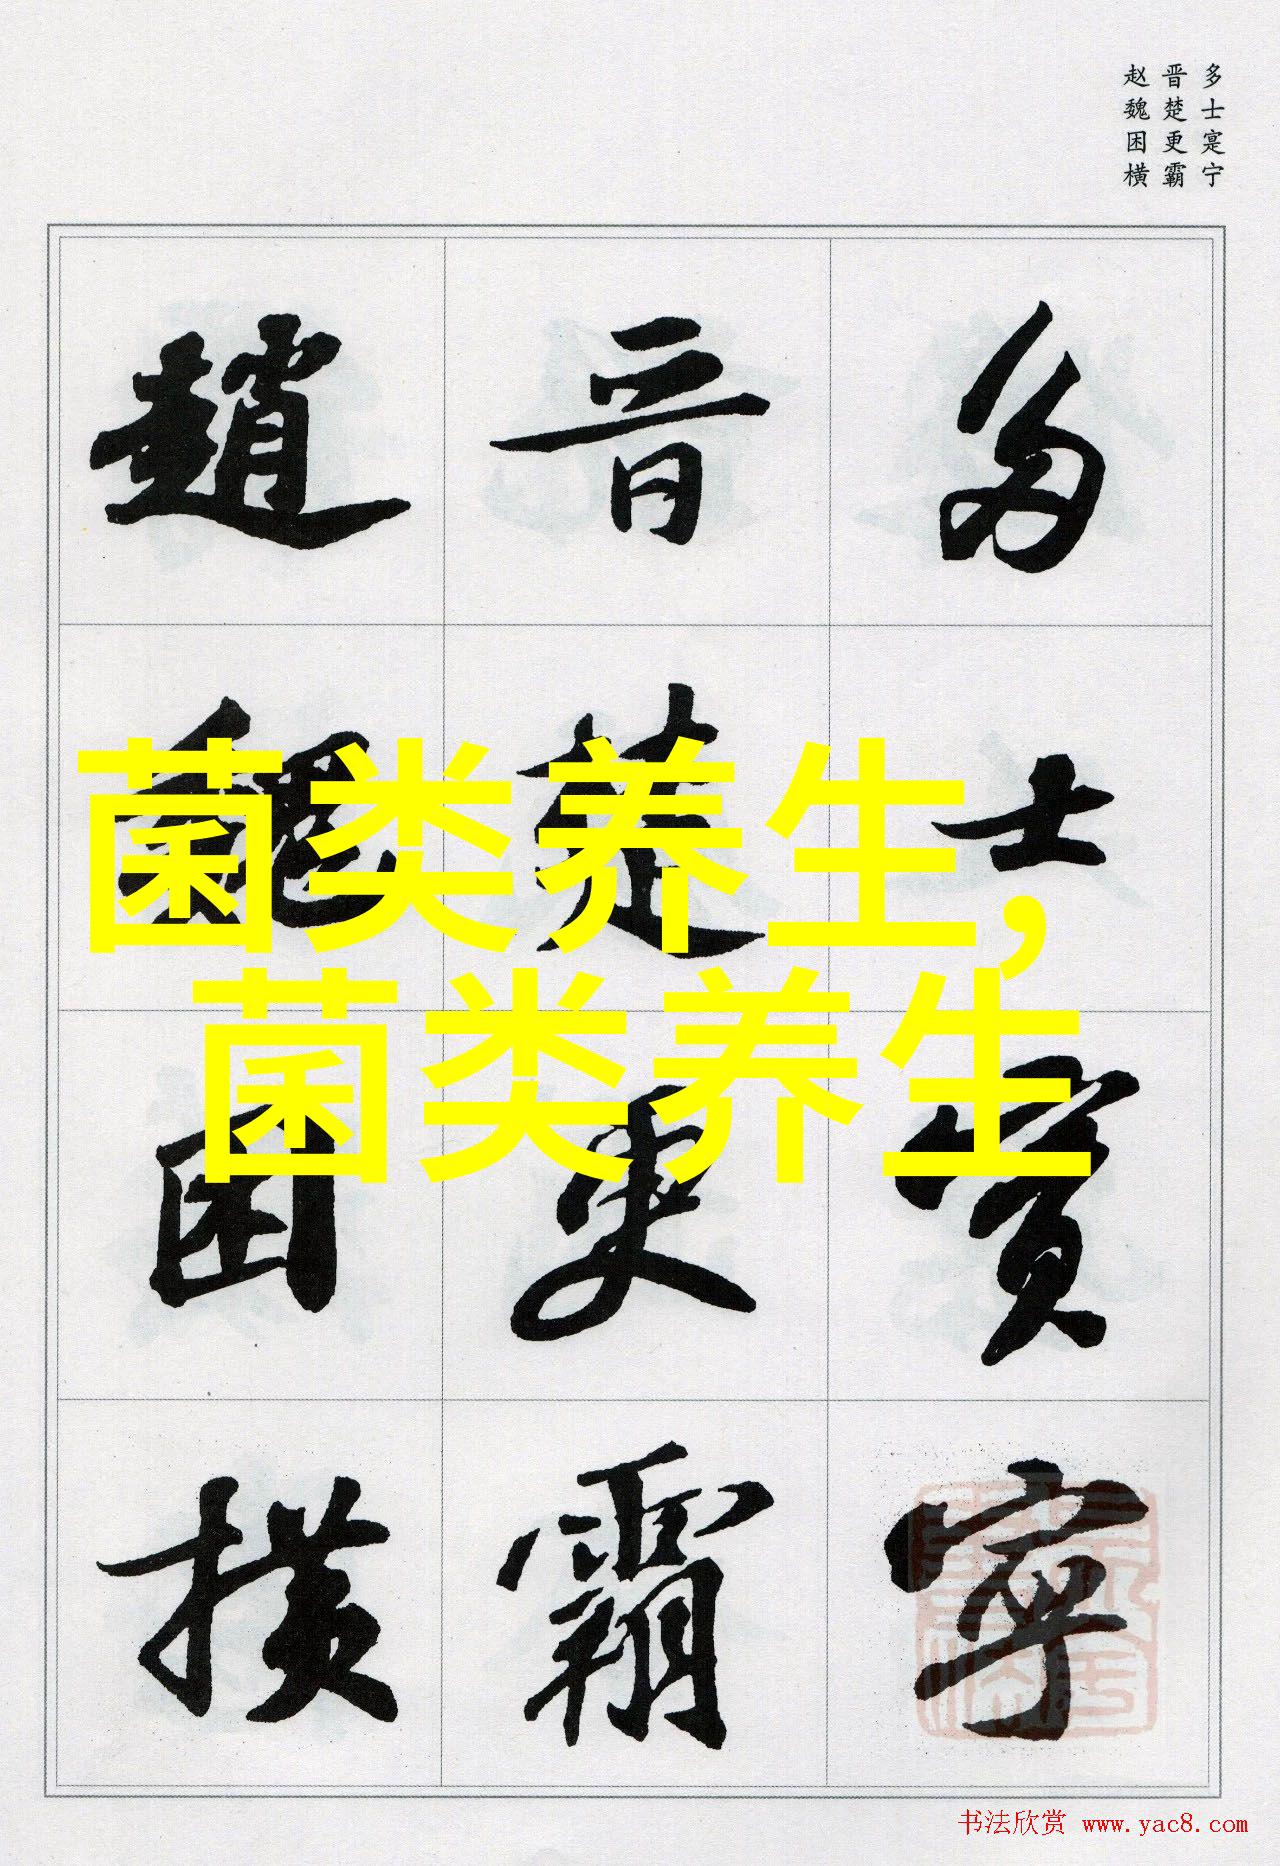 多士寔宁
晋楚更霸
赵魏困横
多士寔寧
晋楚更霸
趙魏困横
菌类养生，
菌类养生
书法欣赏 www.yac8.com